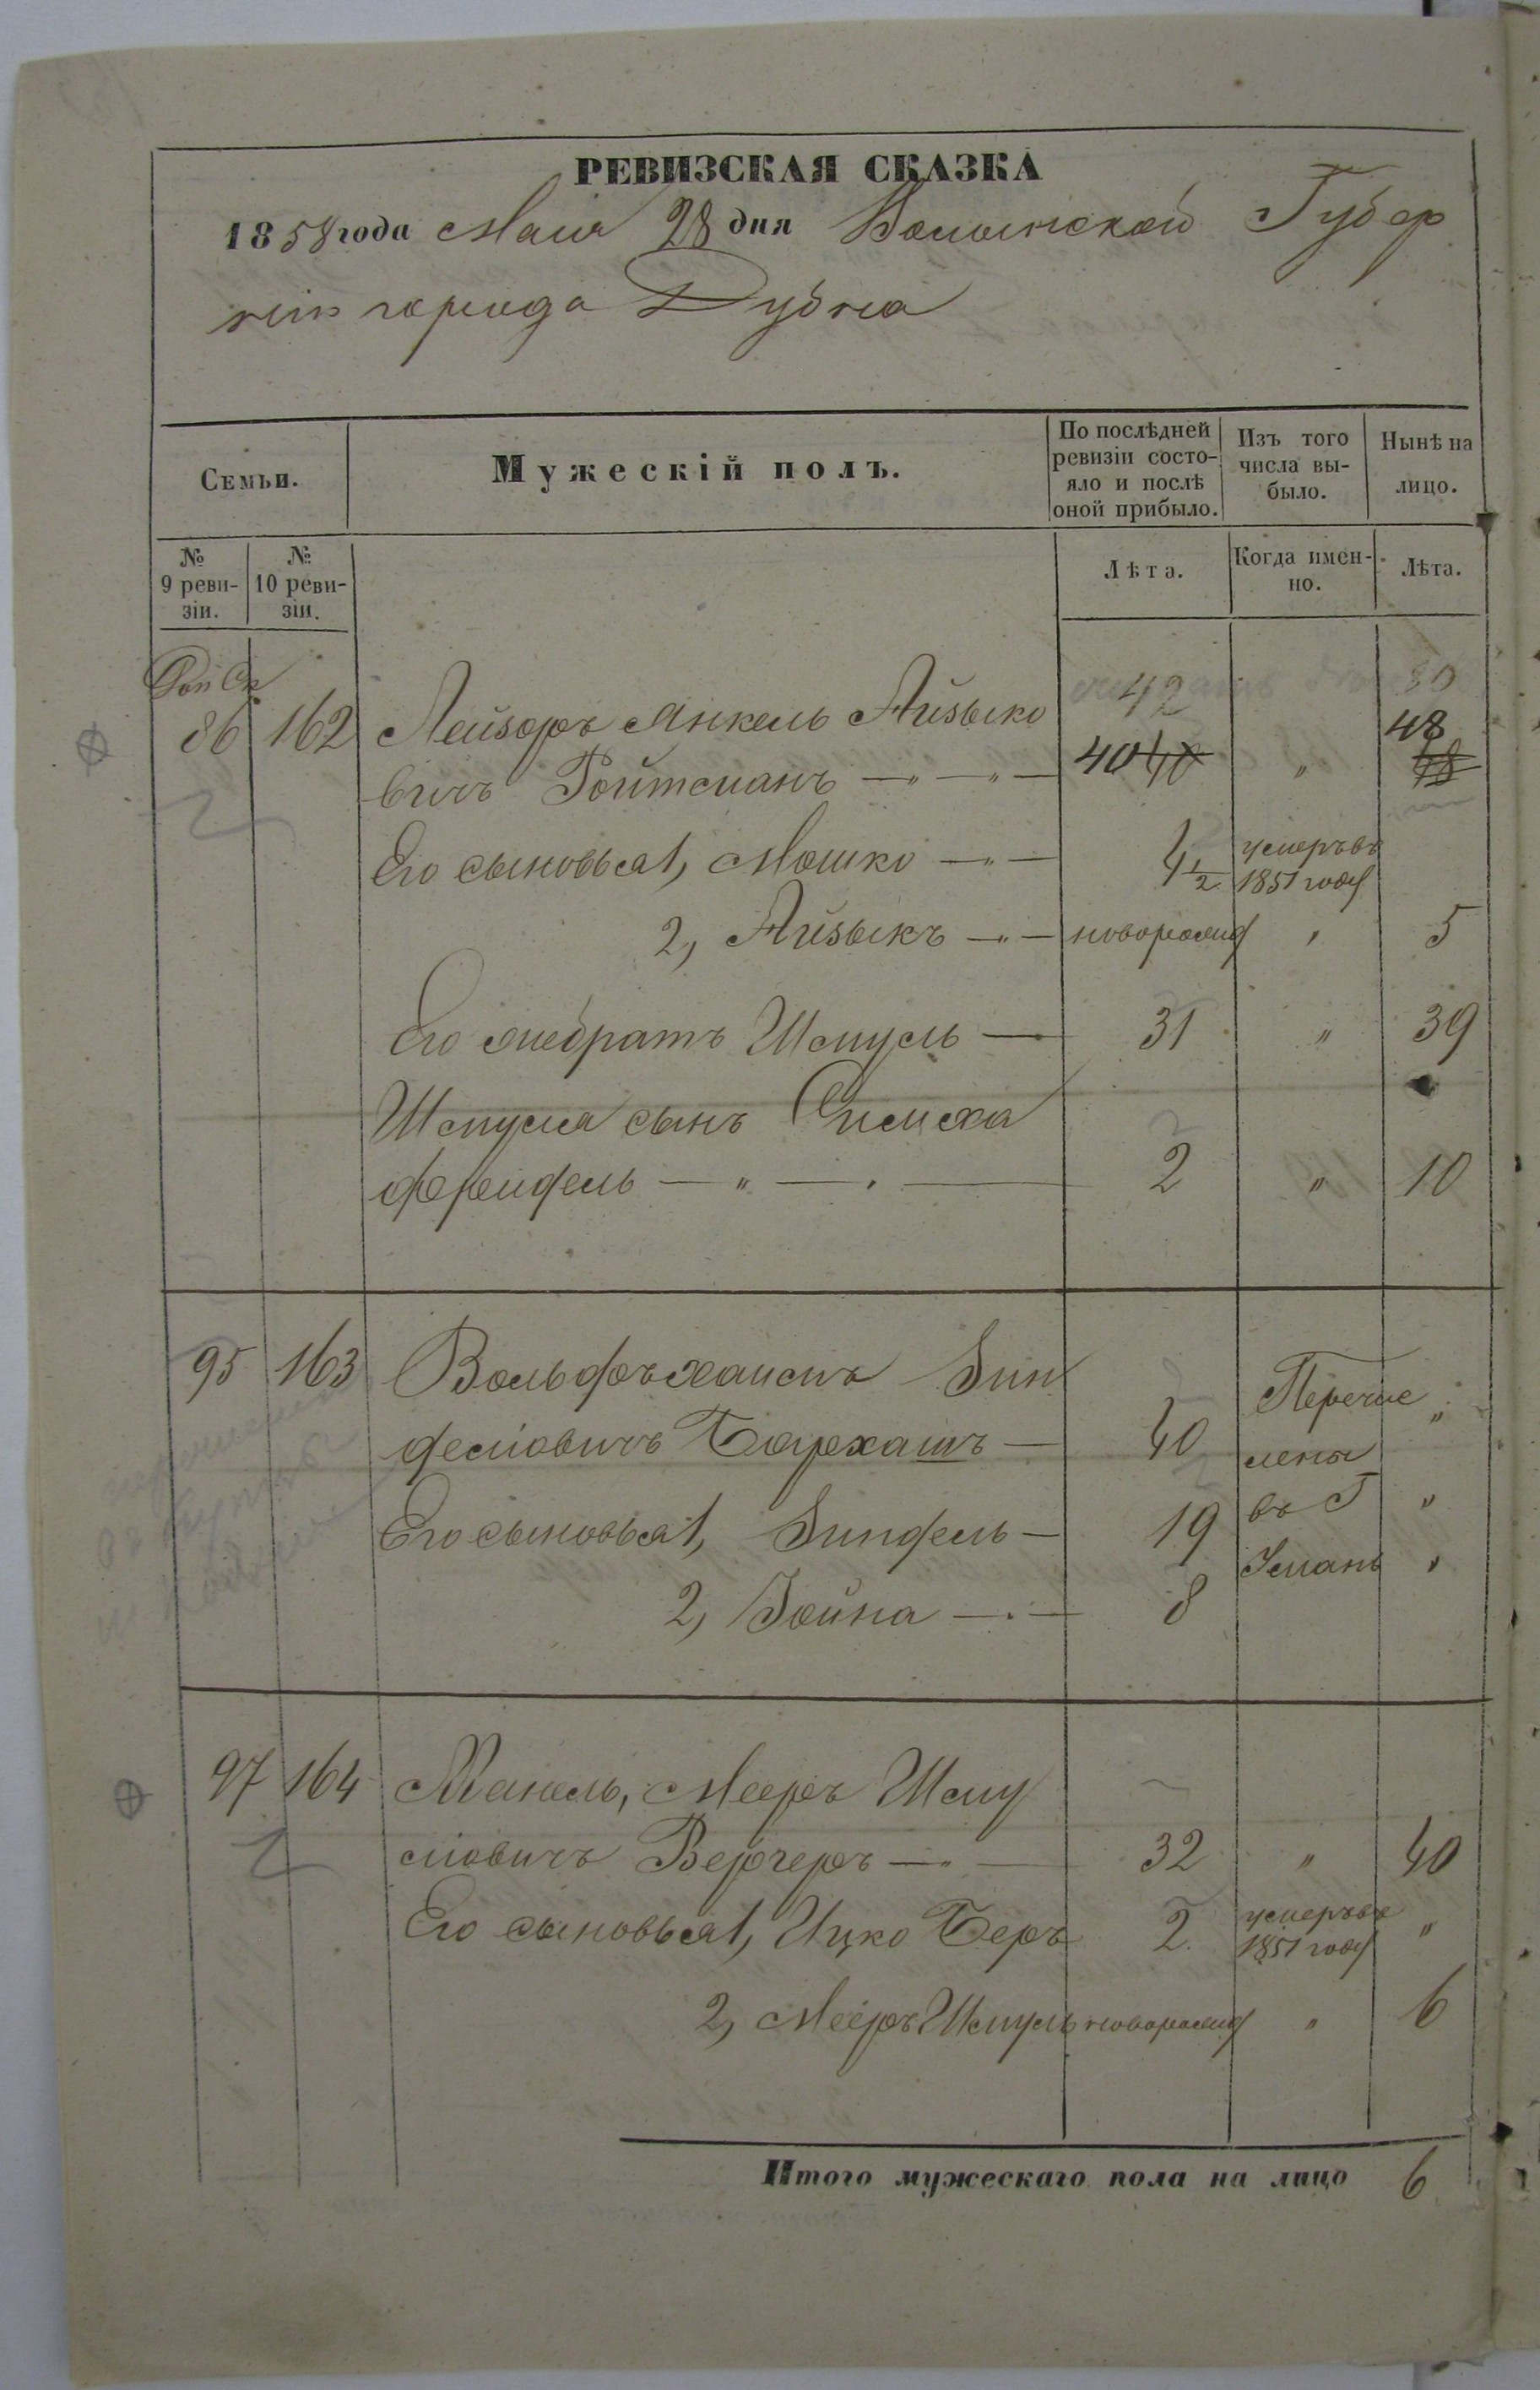 РЕВИЗСКАЯ СКАЗКА
1858 года Маія 28 дня Волынской Губер
ніи города Дубна
Семьи.
Мужескій полъ.
По послѣдней ревизіи состо-
яло и послѣ оной прибыло.
Изъ того числа вы-
было.
Нынѣ на лицо.
№ 9 реви-
зіи.
№ 10 реви-
зіи.
Лѣта.
Когда имен-
но.
Лѣта.
42
86 162 Лейзоръ Янкель Айзыко 48
вичъ Ройтманъ — " — " — 40 40 " 48
Его сыновья 1, Мошко — " — 4 1/2 умеръ въ 1851 году
2, Айзыкъ — " — новорожд " 5
Его же братъ Шмуль — 31 " 39
Шмуля сынъ Симха
Фрейдель — " — . — 2 " 10
95 163 Вольфъ Хаимъ Зин Перечис "
делiовичъ Бархашъ — 40 лены
Его сыновья 1, Зиндель — 19 въ Г "
2, Йойна — . — 8 Умань "
97 164 Манель, Мееръ Шму
лiовичъ Верчеръ — " — 32 " 40
Его сыновья 1, Ицко Беръ 2 умеръ въ 1851 году "
2, Мееръ Шмуль новорожд " 6
Итого мужескаго пола на лицо 6